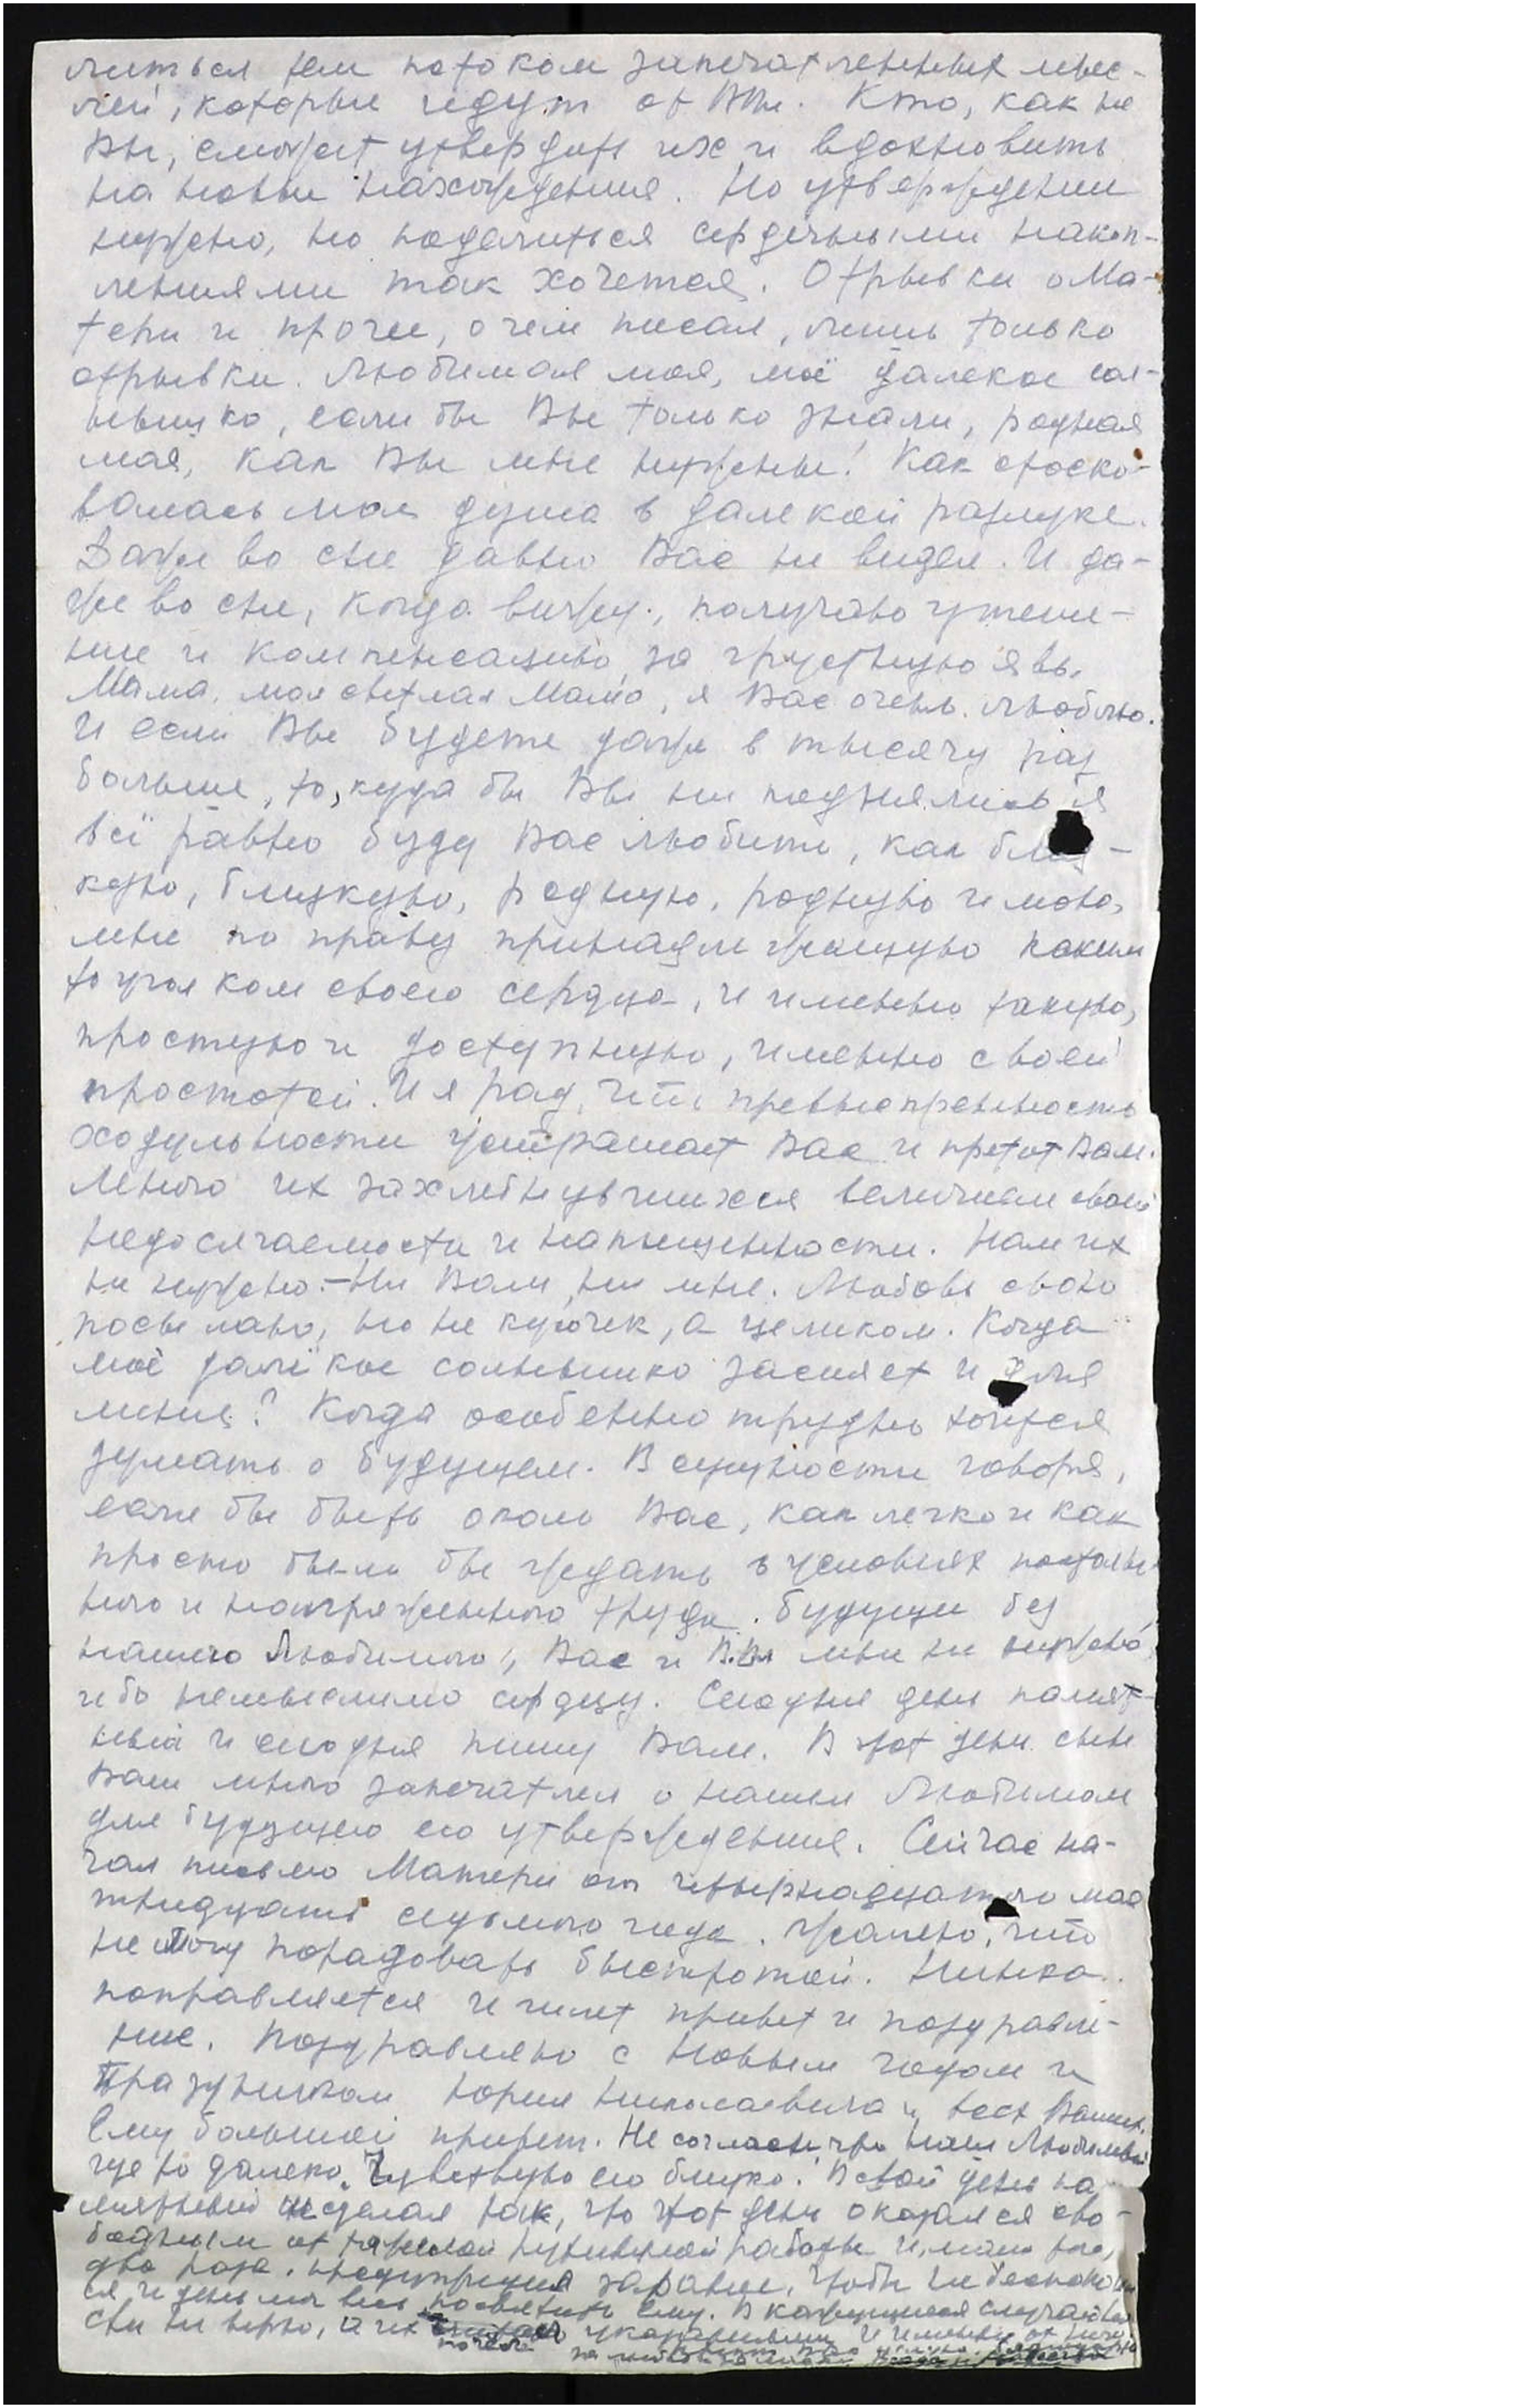 литься тем потоком запечатленных мыс-
лей, которые идут от ВМы. Кто, как не
Вы, сможет утвердить их и вдохновить
на новые нахождения. Но утверждении
нужно, но поделиться сердечными накоп-
лениями так хочется. Отрывки о Ма-
тери и прочее, о чем писал, лишь только
отрывки. Любимая моя, моё далекое сол-
нышко, если бы Вы только знали, родная
моя, как Вы мне нужны! Как стоско-
валась моя душа в далекой разлуке.
Даже во сне давно Вас не видел. И да-
же во сне, когда вижу, получаю утеше-
ние и компенсацию за грустную явь.
Мама, моя светлая Мама, я Вас очень люблю.
И если Вы будете даже в тысячу раз
больше, то, куда бы Вы ни поднялись я
всё равно буду Вас любить, как близ-
кую, близкую, родную, родную и мою,
мне по праву принадлежащую каким
то уголком своего сердца, и именно такую,
простую и доступную, именно своей
простотой. И я рад, что превыспренность
ходульности устрашает Вас и претит Вам.
Много их захлебнувшихся величием своей
недосягаемости и напыщенности. Нам их
не нужно. – Ни Вам, ни мне. Любовь свою
посылаю, но не кусочек, а целиком. Когда
моё далёкое солнышко засияет и для
меня? Когда особенно трудно хочется
думать о будущем. В сущности говоря,
если бы быть около Вас, как легко и как
просто было бы ждать в условиях постоян-
ного и напряженного труда. Будущее без
нашего Любимого, Вас и В.Вл мне не нужно,
ибо немыслимо сердцу. Сегодня день памят-
ный и сегодня пишу Вам. В этот день сын
Ваш много запечатлел о нашем Любимом
для будущего его утверждения. Сейчас на-
чал письмо Матери от четырнадцатого мая
тридцать седьмого года. Жалею, что
не могу порадовать быстротой. Нинка
поправляется и шлет привет и поздравле-
ние. Поздравляю с Новым годом и
Праздником Юрия Николаевича и всех Ваших.
Ему большой привет. Не согласен, что Наш Любимый
где то далеко. Чувствую его близко. В свой день па-
мятный сделал так, что этот день оказался сво-
бодным от тяжелой рутинной работы и, мало того,
два раза предупредил заранее, чтобы не беспокоил
ся и день мог весь посвятить Ему. В кажущиеся случайно
сти не верю, а их указанными и именно от Него